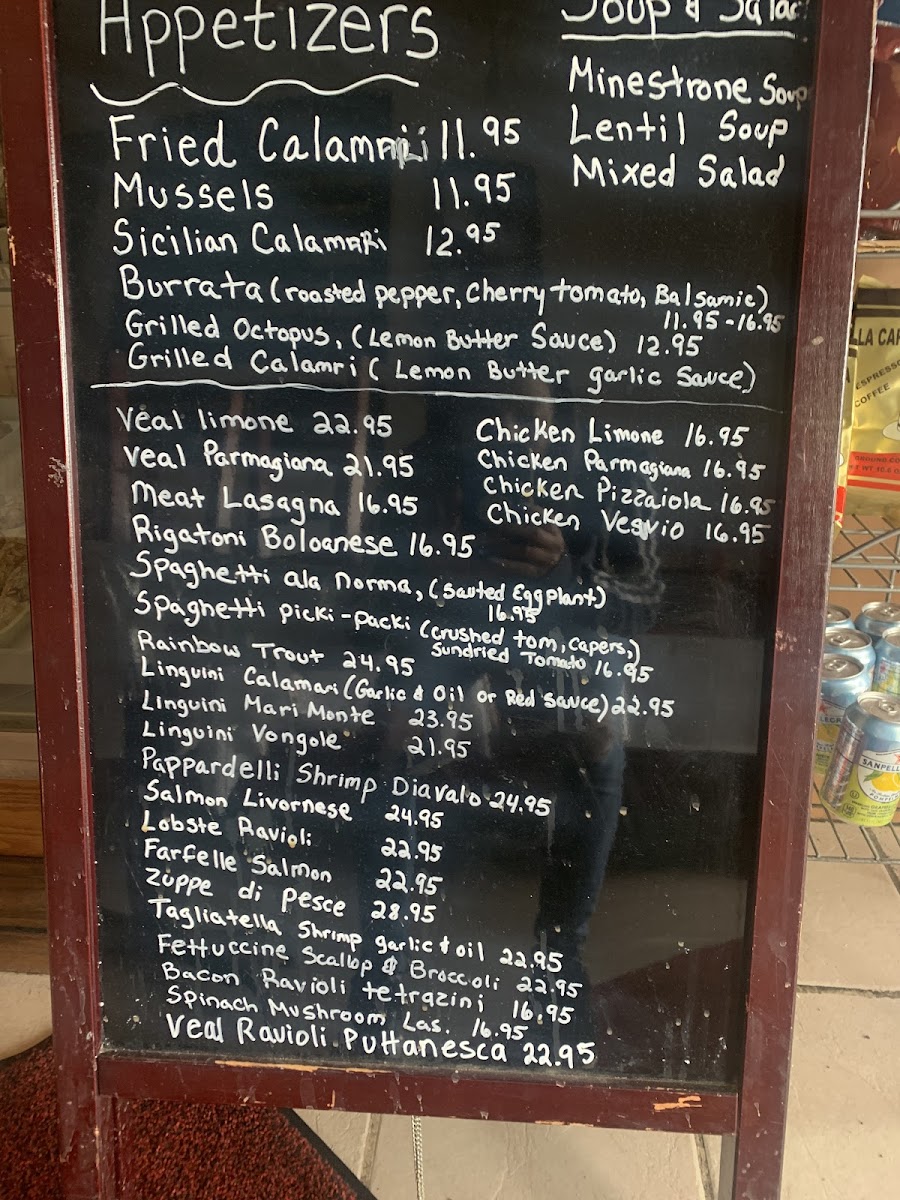 Appetizers
Fried Calamari 11.95
Mussels 11.95
Sicilian Calamari 12.95
Burrata (roasted pepper, Cherry tomato, Balsamic)
11.95-16.95
Grilled Octopus, (Lemon Butter Sauce) 12.95
Grilled Calamri (Lemon Butter garlic Sauce)
Soup & Salad
Minestrone Soup
Lentil Soup
Mixed Salad
Veal limone 22.95
Veal Parmagiana 21.95
Meat Lasagna 16.95
Rigatoni Boloanese 16.95
Chicken Limone 16.95
Chicken Parmagiana 16.95
Chicken Pizzaiola 16.95
Chicken Vesvio 16.95
Spaghetti ala Norma, (Sauted Eggplant)
16.95
Spaghetti picki-packi (crushed tom, capers,)
Sundried Tomato 16.95
Rainbow Trout 24.95
Linguini Calamari (Garlic & Oil or Red Sauce) 22.95
Linguini Mari Monte 23.95
Linguini Vongole 21.95
Pappardelli Shrimp Diavalo 24.95
Salmon Livornese 24.95
Lobste Ravioli 22.95
Farfelle Salmon 22.95
Zuppe di pesce 28.95
Tagliatella Shrimp garlic & oil 22.95
Fettuccine Scallop & Broccoli 22.95
Bacon Ravioli tetrazini 16.95
Spinach Mushroom Las. 16.95
Veal Ravioli Puttanesca 22.95
ESPRESSO
COFFEE
SANPELL